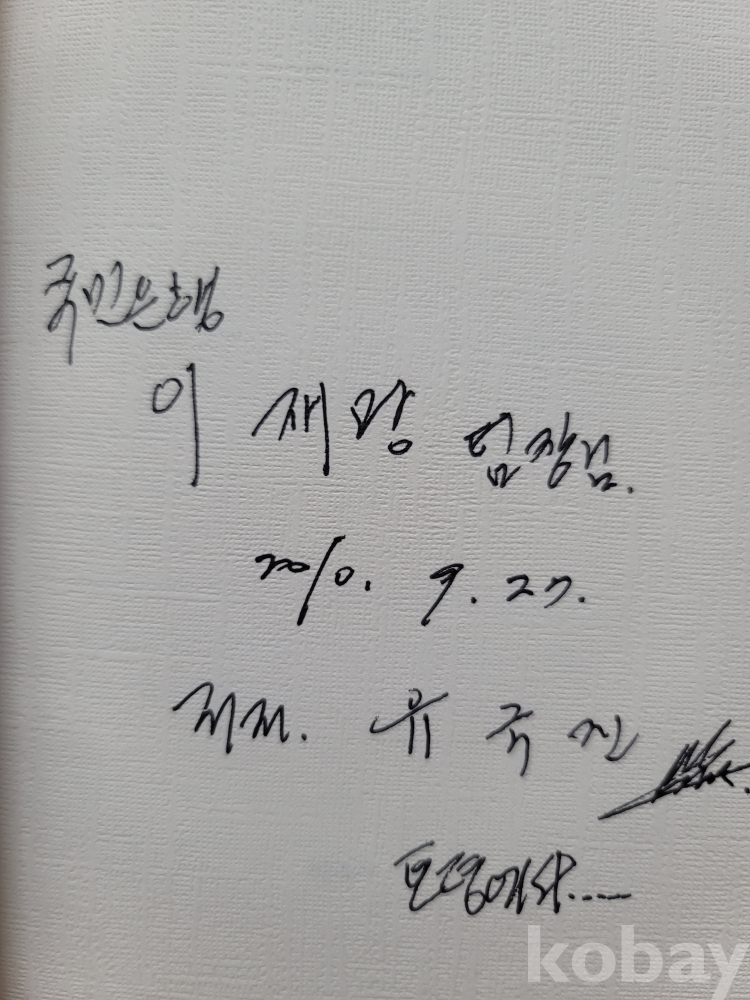 국민은행
이재광 팀장님.
2010. 9. 27.
저자. 유국진
보령에서.....
kobay